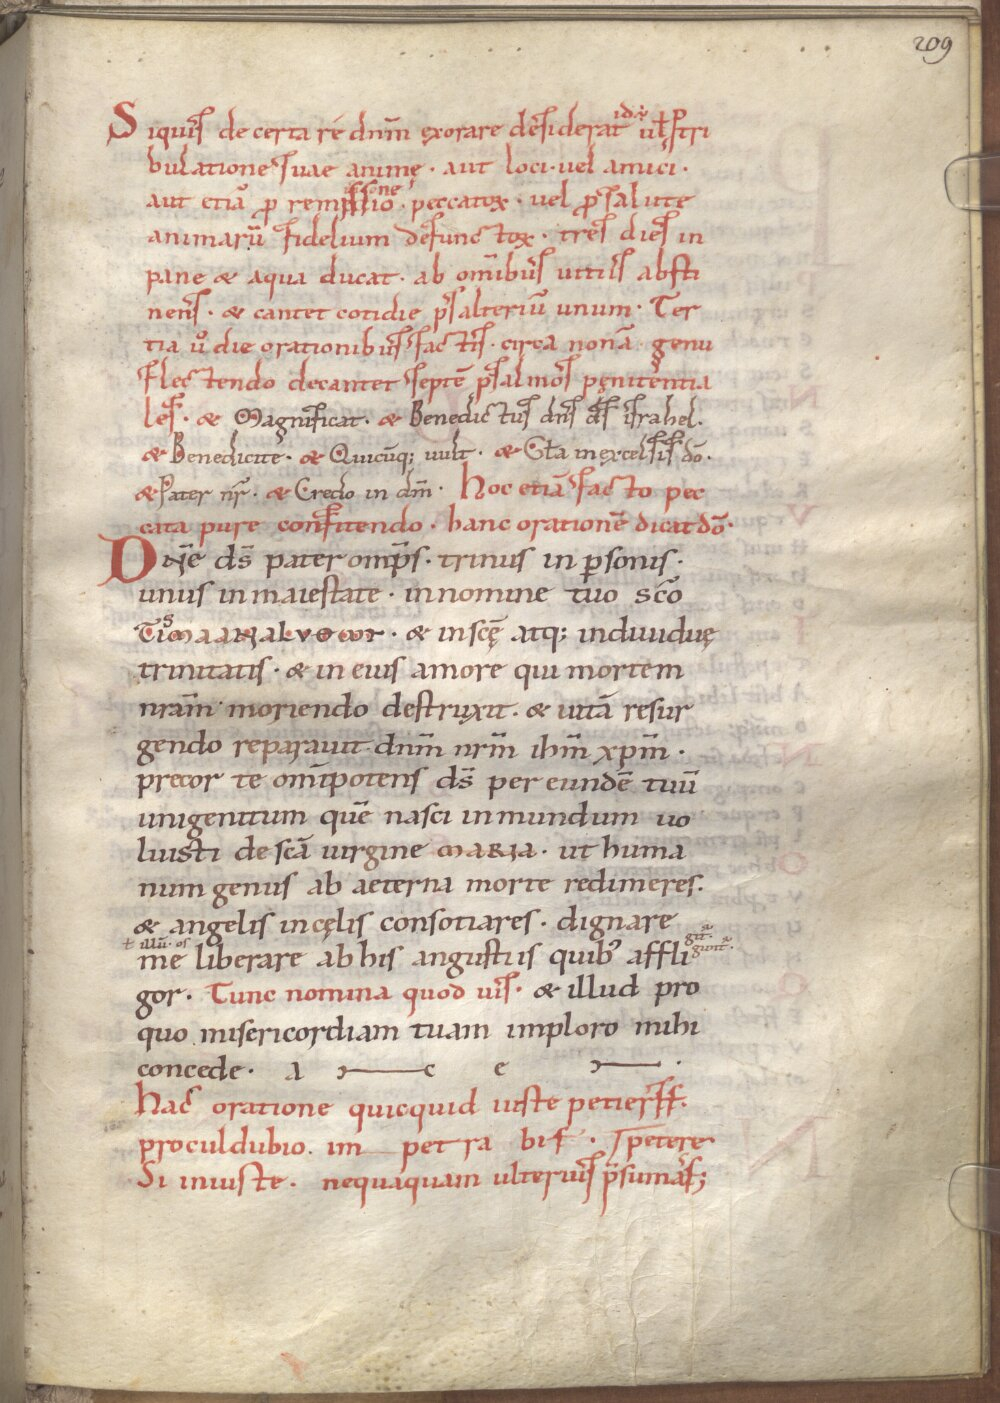 209
Siquis de certa re dnm̄ ęxorare desiderat id ÷ ul̵ p tri
bulatione suae animę · aut loci · vel amici ·
aut etiā p remissione · peccatoꝝ · vel p salute
animarū fidelium defunctoꝝ · tres dies in
pane & aqua ducat · ab omīb; uitiis absti
nens · & cantet cotidie psalteriū unum · Ter
tia ů die orationibus factis · circa nonā · genu
flectendo decantet septē psalmos pęnitentia
les · & Magnificat · & Benedictus dn̄s d̄s israhel ·
& Benedicite · & Quicūq; uult · & Gl̵a in excelsis dō ·
& Pater nr̄ · & Credo in dm̄ · Hoc etiā facto pec
cata pure confitendo · hanc orationē dicat dō ·
DN̄e ds̄ pater omp̄s · trinus in psonis ·
unus in maiestate · in nomine tuo sc̄o
& in scę̄ atq; indiuiduę
trinitatis · & in eius amore qui mortem
nrām moriendo destruxit · & uitā resur
gendo reparauit dnm̄ nrm̄ ihm̄ xpm̄ ·
precor te omīpotens ds̄ per eundē tuū
unigenitum quē nasci in mundum uo
luisti de scā uirgine MARIA · ut huma
num genus ab aeterna morte redimeres ·
& angelis in cęlis consotiares · dignare
ł illū · os
me liberare ab his angustiis quib; affli
gor · Tunc nomina quod uis · & illud pro
quo misericordiam tuam imploro mihi
concede · a c e
Hac oratione quicquid iuste petieris
procul dubio · im petra bis · petere
Si iniuste · nequaquam ulterius p̄sumas;